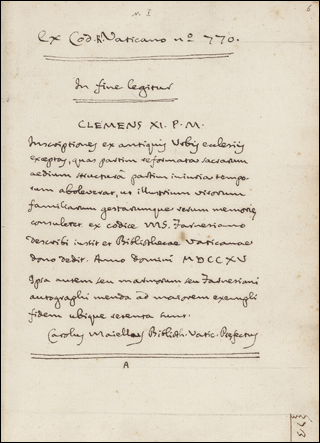 N. I
6
Ex Cod. R. Vaticano nº 770.
In fine legitur
CLEMENS XI. P. M.
Inscriptiones ex antiquis Urbis ecclesiis
exceptas, quas partim reformata sacrarum
aedium structurâ partim iniuria tempo-
rum aboleverat, ut illustrium virorum
familiarum gestarumque rerum memoriae
consuleret ex codice MS. Farnesiano
describi iussit et Bibliothecae Vaticanae
dono dedit. Anno domini MDCCXV
Ipsa autem seu marmorum seu Farnesiani
autographi menda ad maiorem exempli
fidem ubique retenta sunt.
Carolus Maiellus Biblioth. Vatic. Praefectus
A